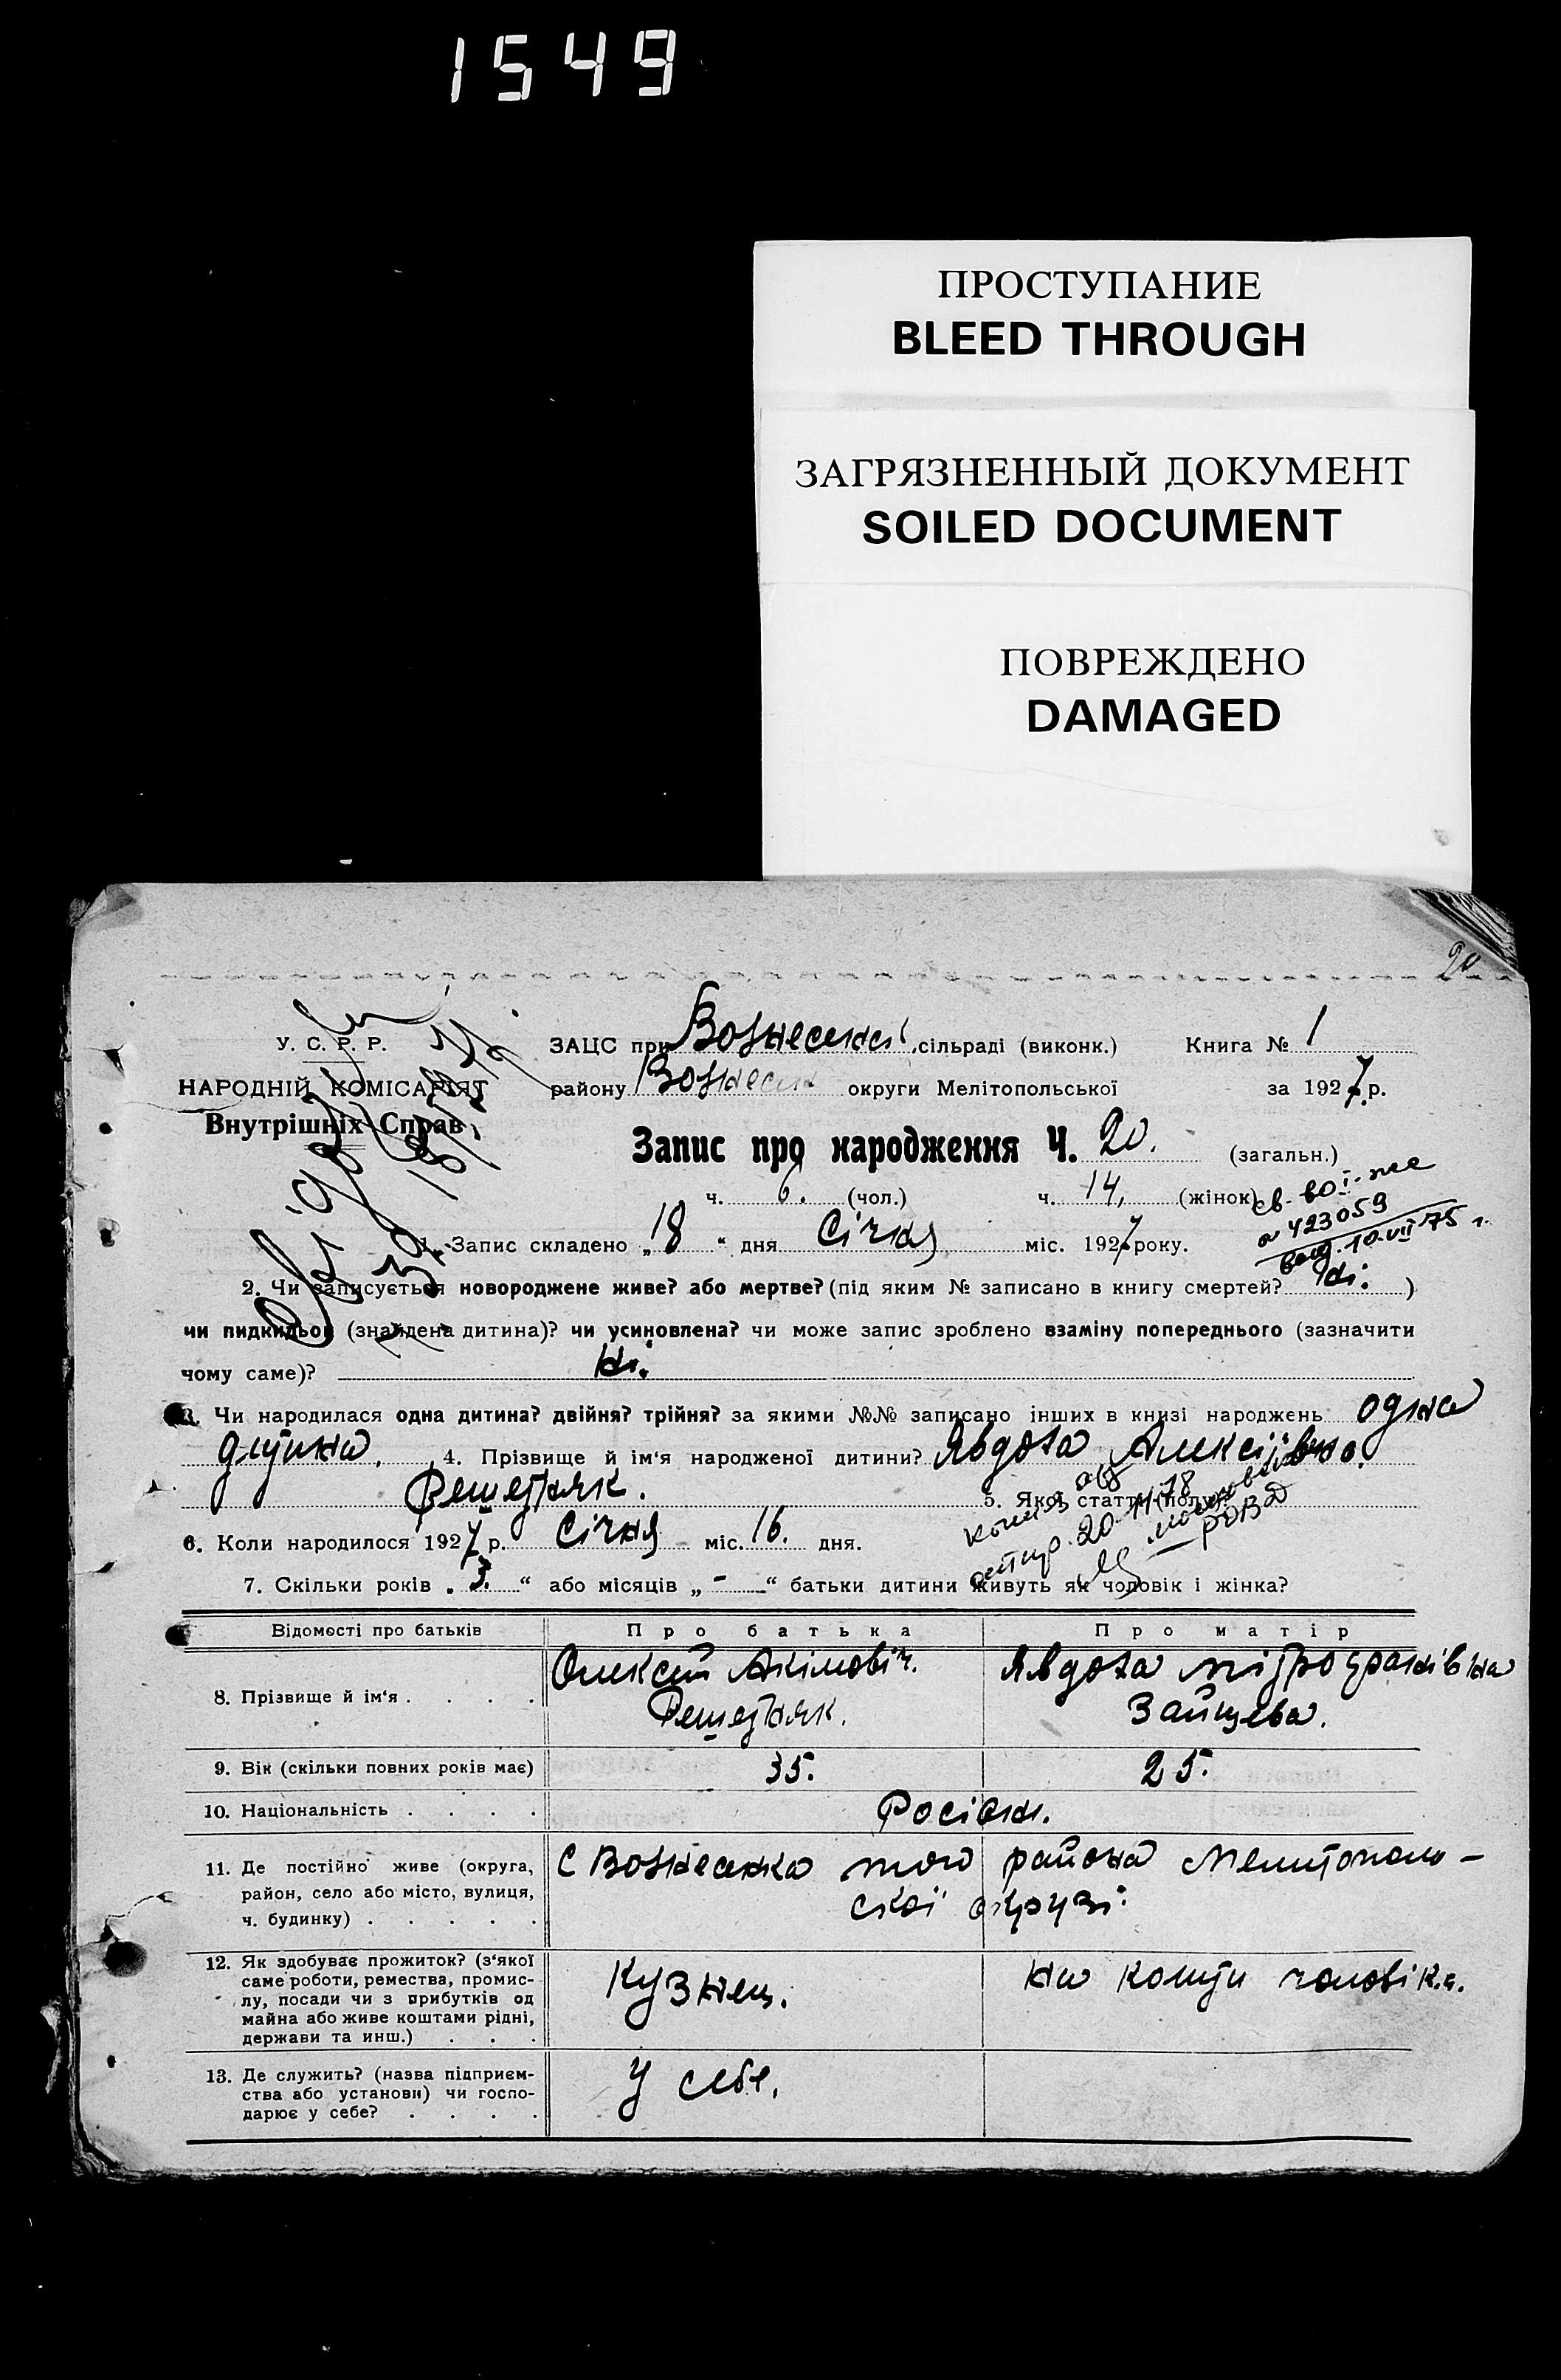 1549
ПРОСТУПАНИЕ
BLEED THROUGH
ЗАГРЯЗНЕННЫЙ ДОКУМЕНТ
SOILED DOCUMENT
ПОВРЕЖДЕНО
DAMAGED
20
У. С. Р. Р.
НАРОДНІЙ КОМІСАРІЯТ
Внутрішніх Справ
ЗАЦС при Вознесенкі сільраді (виконк.) Книга № 1
району Вознесен округи Мелітопольської за 1927 р.
Запис про народження Ч. 20. (загальн.)
ч. 6. (чол.) ч. 14, (жінок)
а 423059
выд. 10.VII 75 г.
1. Запис складено „18“ дня Січня міс. 1927 року.
2. Чи записується новороджене живе? або мертве? (під яким № записано в книгу смертей? Ні. )
чи пидкидьок (знайдена дитина)? чи усиновлена? чи може запис зроблено взаміну попереднього (зазначити
чому саме)? Ні.
3. Чи народилася одна дитина? двійня? трійня? за якими №№ записано інших в книзі народжень одна
дитина. 4. Прізвище й ім'я народженої дитини? Явдоха Алексіївна.
Решетняк. 5. Якої статті (полу)?
20-11-78
6. Коли народилося 1927 р. Січня міс. 16. дня.
7. Скільки років „ 3. “ або місяців „ - “ батьки дитини живуть як чоловік і жінка?
Відомості про батьків Про батька Про матір
8. Прізвище й ім'я . . . . Олексій Акімовіч. Решетняк. Явдоха Мітрофанівна Зайцева.
9. Вік (скільки повних років має) 35. 25.
10. Національність . . . . Росіян.
11. Де постійно живе (округа, район, село або місто, вулиця, ч. будинку) . . . . . С Вознесенка того району Мелитополь-
ської округи.
12. Як здобуває прожиток? (з'якої саме роботи, ремества, промислу, посади чи з прибутків од майна або живе коштами рідні, держави та инш.) . . . Кузнец. На кошти чоловіка.
13. Де служить? (назва підприємства або установи) чи господарює у себе? . . . . У себе.